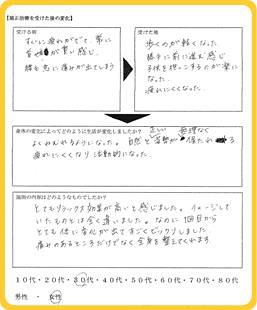 【矯正治療を受けた後の変化】
受ける前
すぐに疲れがでて、常に
首や肩が重い感じ
腰も急に痛みが出てしまう
受けた後
歩くのが軽くなった
勝手に前に進む感じ
子供を抱っこするのが楽に
なった
疲れにくくなった
身体の変化によってどのように生活が変化しましたか?
正しい 無理なく
よくねむれるようになった。自然と姿勢が保たれる
疲れにくくなり活動的になった。
施術の内容はどのようなものでしたか?
とてもリラックス効果が高いと感じました。イメージして
いたものとは全く違いました。なのに1回目から
とても体に変化が出てすごくビックリしました。
痛みのあるところだけでなく全身を整えてくれます。
10代・20代・30代・40代・50代・60代・70代・80代
男性 ・ 女性